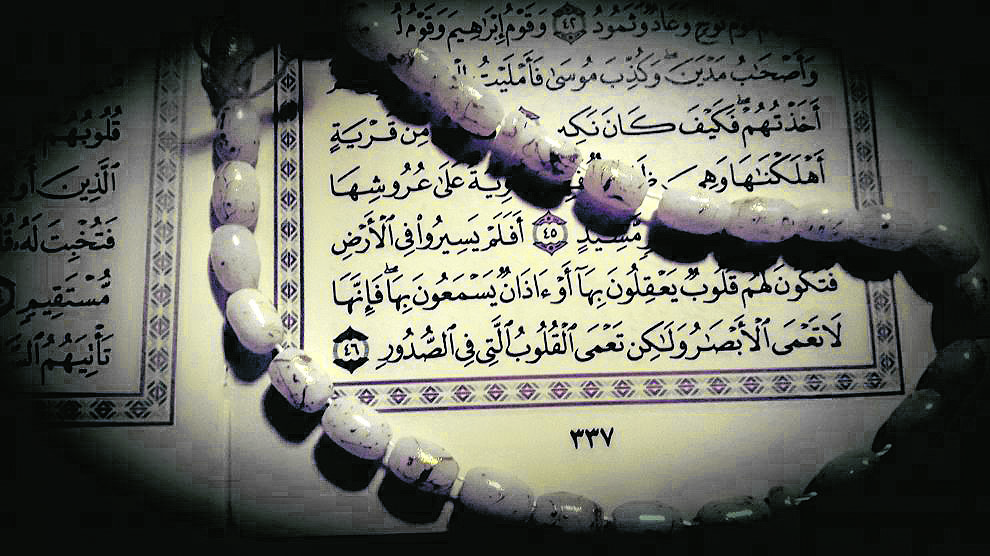 قَوْمُ نُوحٍ وَعَادٌ وَثَمُودُ ٤٢ وَقَوْمُ إِبْرَٰهِيمَ وَقَوْمُ لُ
وَأَصْحَٰبُ مَدْيَنَ ۖ وَكُذِّبَ مُوسَىٰ فَأَمْلَيْتُ
أَخَذْتُهُمْ ۖ فَكَيْفَ كَانَ نَكِ مِن قَرْيَةٍ
أَهْلَكْنَٰهَا وَهِىَ وِيَةٌ عَلَىٰ عُرُوشِهَا
مَّشِيدٍ ٤٥ أَفَلَمْ يَسِيرُوا۟ فِى ٱلْأَرْضِ
فَتَكُونَ لَهُمْ قُلُوبٌ يَعْقِلُونَ بِهَآ أَوْ ءَاذَانٌ يَسْمَعُونَ بِهَا ۖ فَإِنَّهَا
لَا تَعْمَى ٱلْأَبْصَٰرُ وَلَٰكِن تَعْمَى ٱلْقُلُوبُ ٱلَّتِى فِى ٱلصُّدُورِ ٤٦
٣٣٧
قُلُوبُهُمْ
ٱلَّذِينَ أُو
فَتُخْبِتَ لَهُۥ قُ
مُّسْتَقِيمٍ
تَأْتِيَهُمُ ٱلسَّ